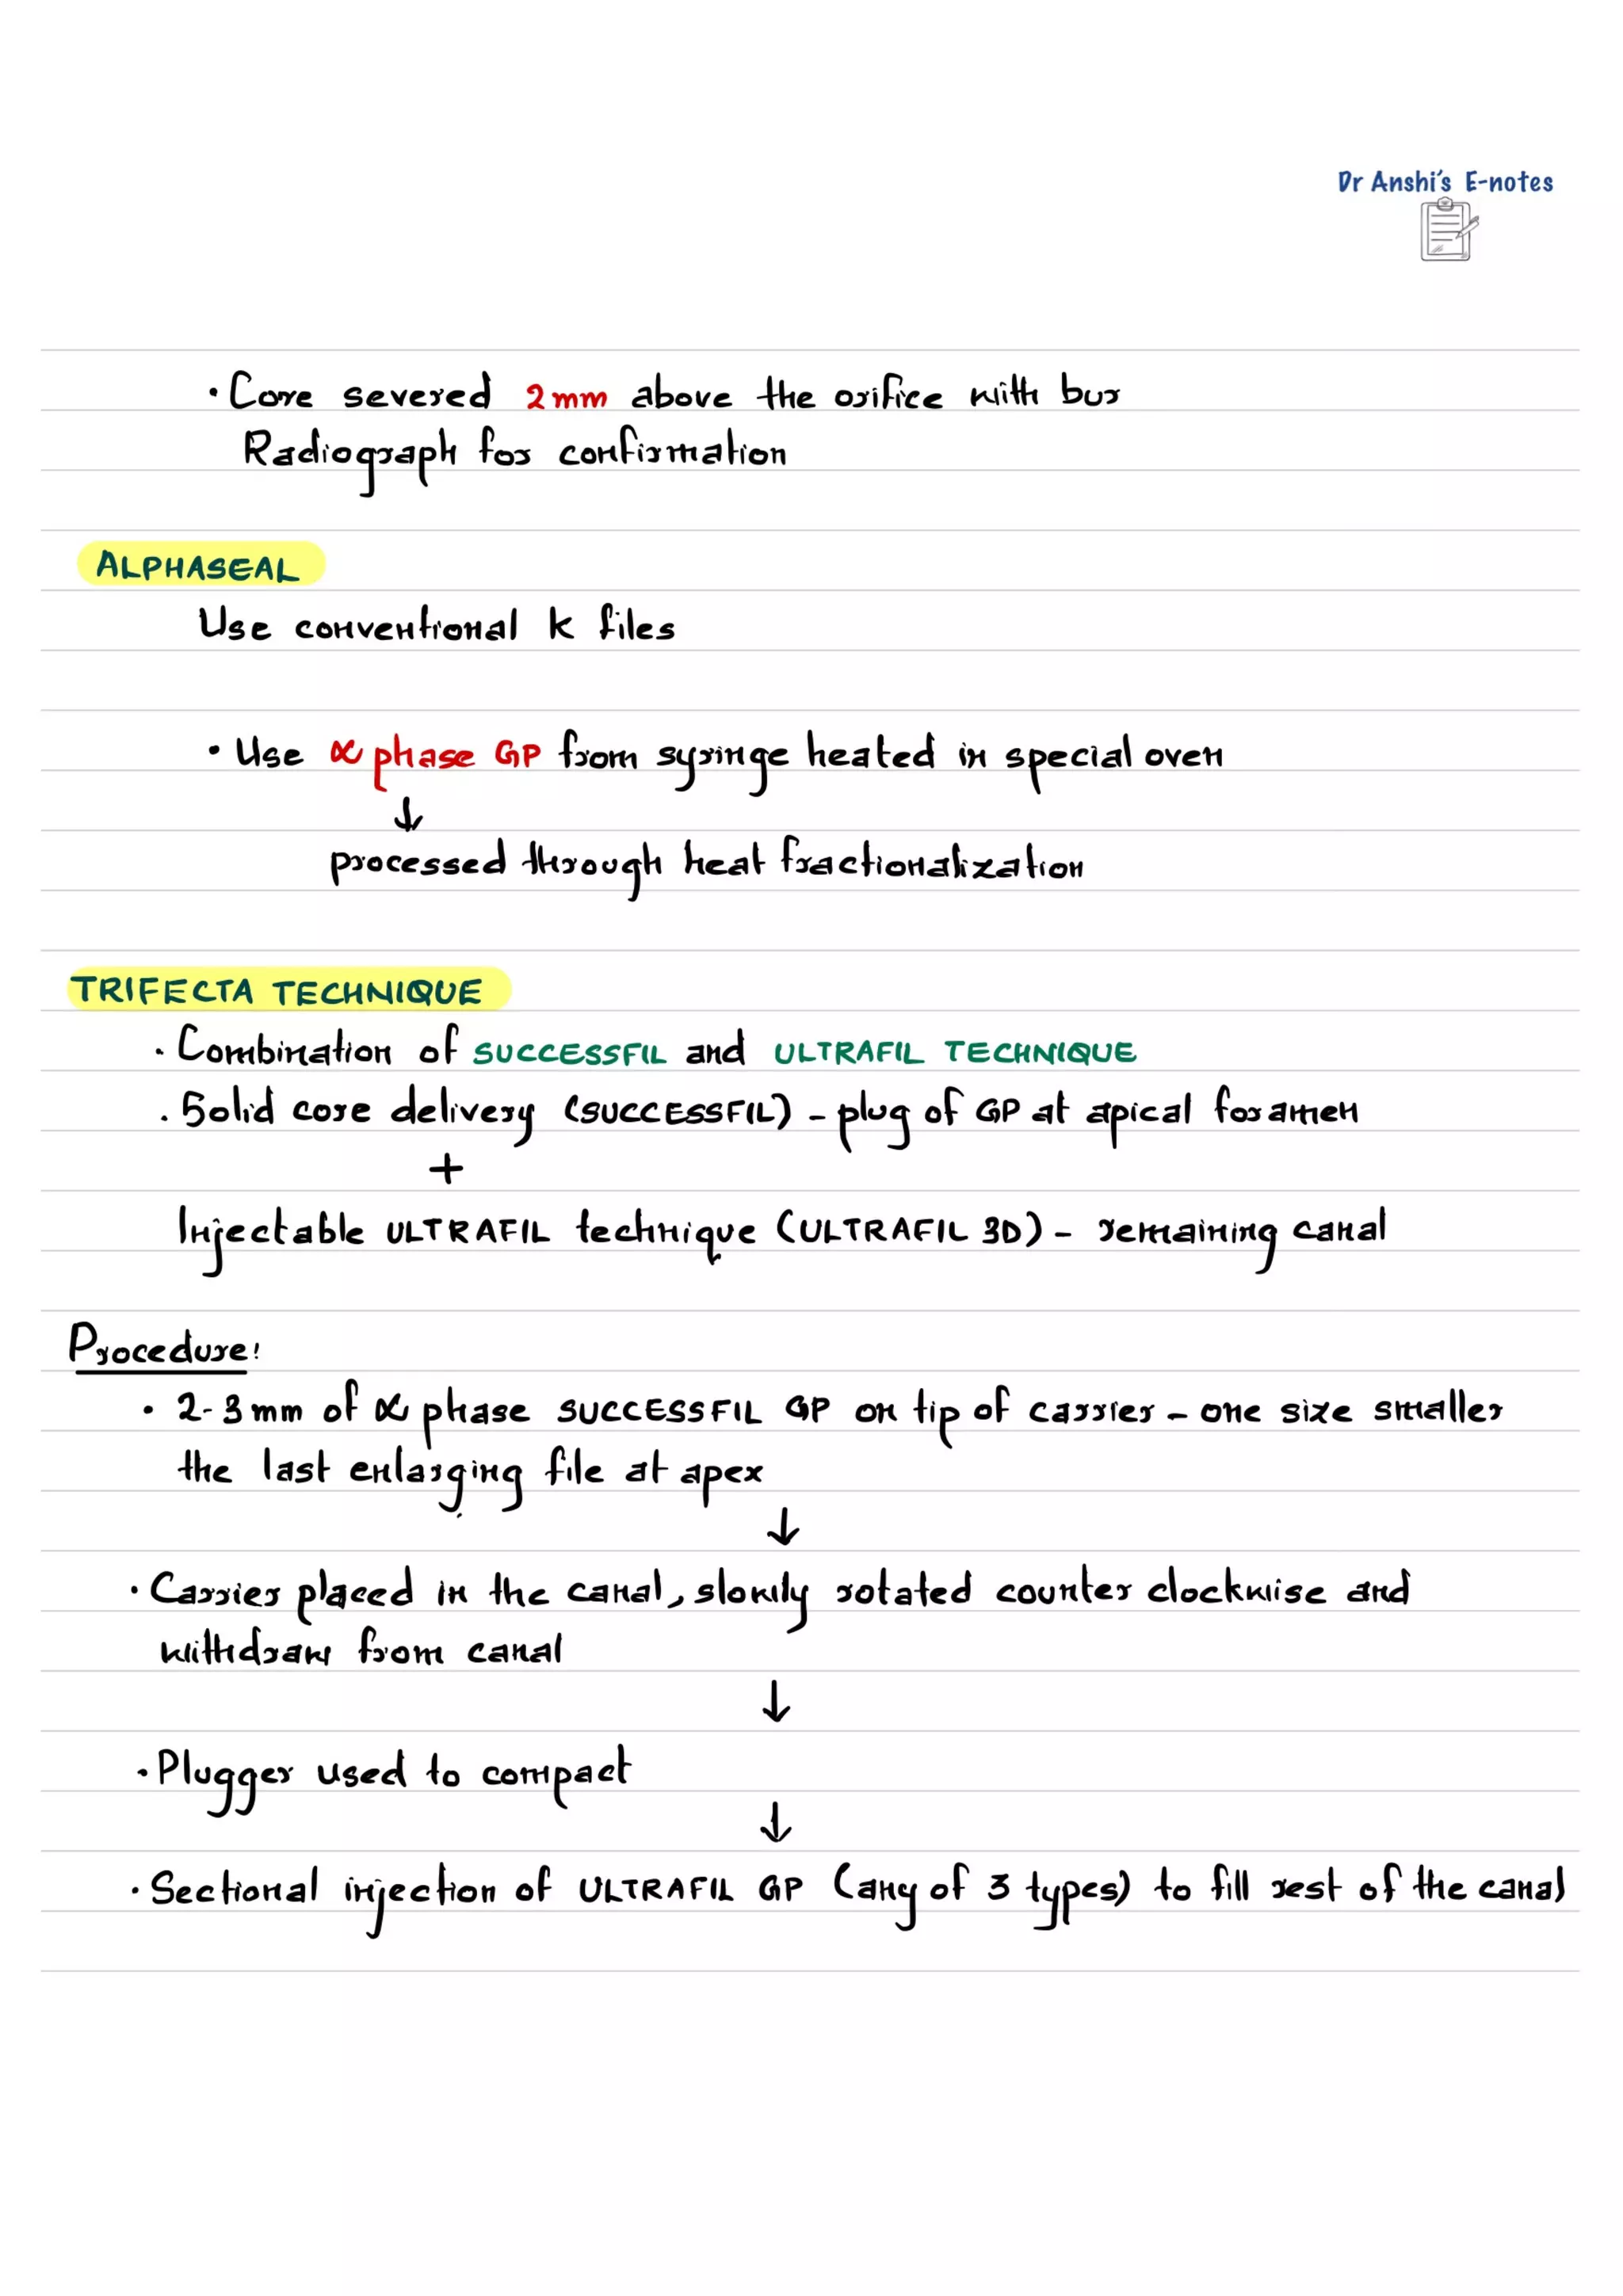 Dr Anshi's E-notes
• Core severed 2mm above the orifice with bur
Radiograph for confirmation
ALPHASEAL
Use conventional K files
• Use α phase GP from syringe heated in special oven
↓
processed through heat fractionalization
TRIFECTA TECHNIQUE
• Combination of SUCCESSFIL and ULTRAFIL TECHNIQUE
• Solid core delivery (SUCCESSFIL) - plug of GP at apical foramen
+
Injectable ULTRAFIL technique (ULTRAFIL 3D) - remaining canal
Procedure:
• 2-3mm of α phase SUCCESSFIL GP on tip of carrier - one size smaller
the last enlarging file at apex
↓
• Carrier placed in the canal, slowly rotated counter clockwise and
withdrawn from canal
↓
• Plugger used to compact
↓
• Sectional injection of ULTRAFIL GP (any of 3 types) to fill rest of the canal